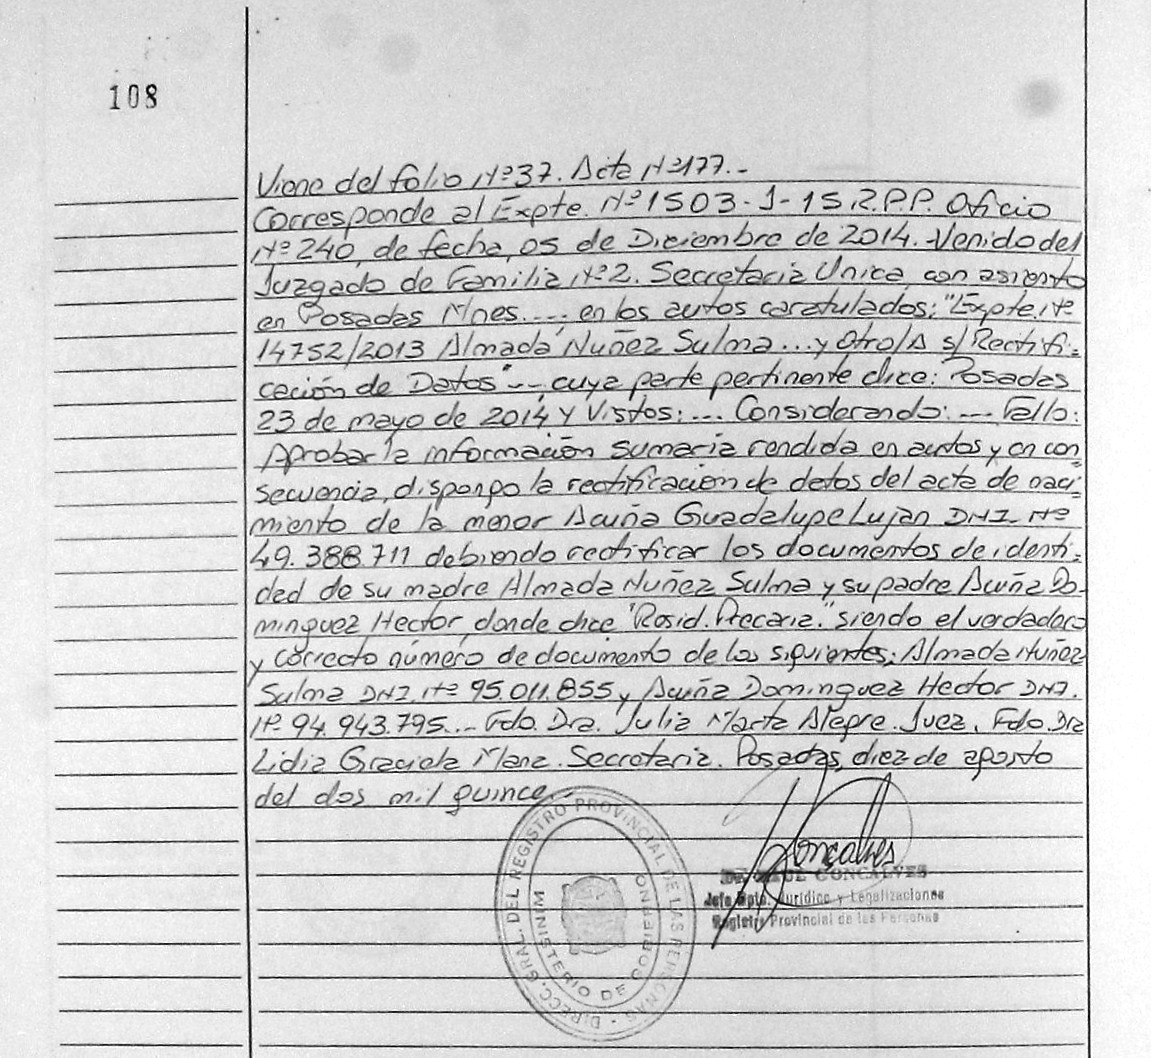 108
Viene del folio Nº 37. Acta Nº 177.-
Corresponde al Expte. Nº 1503-J-15 R.P.P. Oficio
Nº 240, de fecha, 05 de Diciembre de 2014. Venido del
Juzgado de Familia Nº 2. Secretaria Unica, con asiento
en Posadas Mnes.... en los autos caratulados: "Expte. Nº
14752/2013 Almada Nuñez Sulma... y Otro/A s/ Rectifi-
cación de Datos"-- cuya parte pertinente dice: Posadas
23 de mayo de 2014 y Vistos:.... Considerando:.... Fallo:
Aprobar la información sumaria rendida en autos y en con-
secuencia, dispongo la rectificación de datos del acta de naci-
miento de la menor Acuña Guadalupe Lujan DNI. Nº
49.388.711 debiendo rectificar los documentos de identi-
dad de su madre Almada Nuñez Sulma y su padre Acuña Do-
minguez Hector, donde dice "Resid. Precaria." siendo el verdadero
y correcto número de documento de los siguientes: Almada Nuñez
Sulma DNI. Nº 95.011.855 y Acuña Dominguez Hector DNI.
Nº 94.943.795... Fdo. Dra. Julia Marta Alegre. Juez. Fdo. Dra
Lidia Graciela Manz. Secretaria. Posadas, diez de agosto
del dos mil quince.
DIRECC. GRAL. DEL REGISTRO PROVINCIAL DE LAS PERSONAS
MINISTERIO DE GOBIERNO
Goncalves
GONCALVES
Jefe Dpto. Jurídico y Legalizaciones
Registro Provincial de las Personas